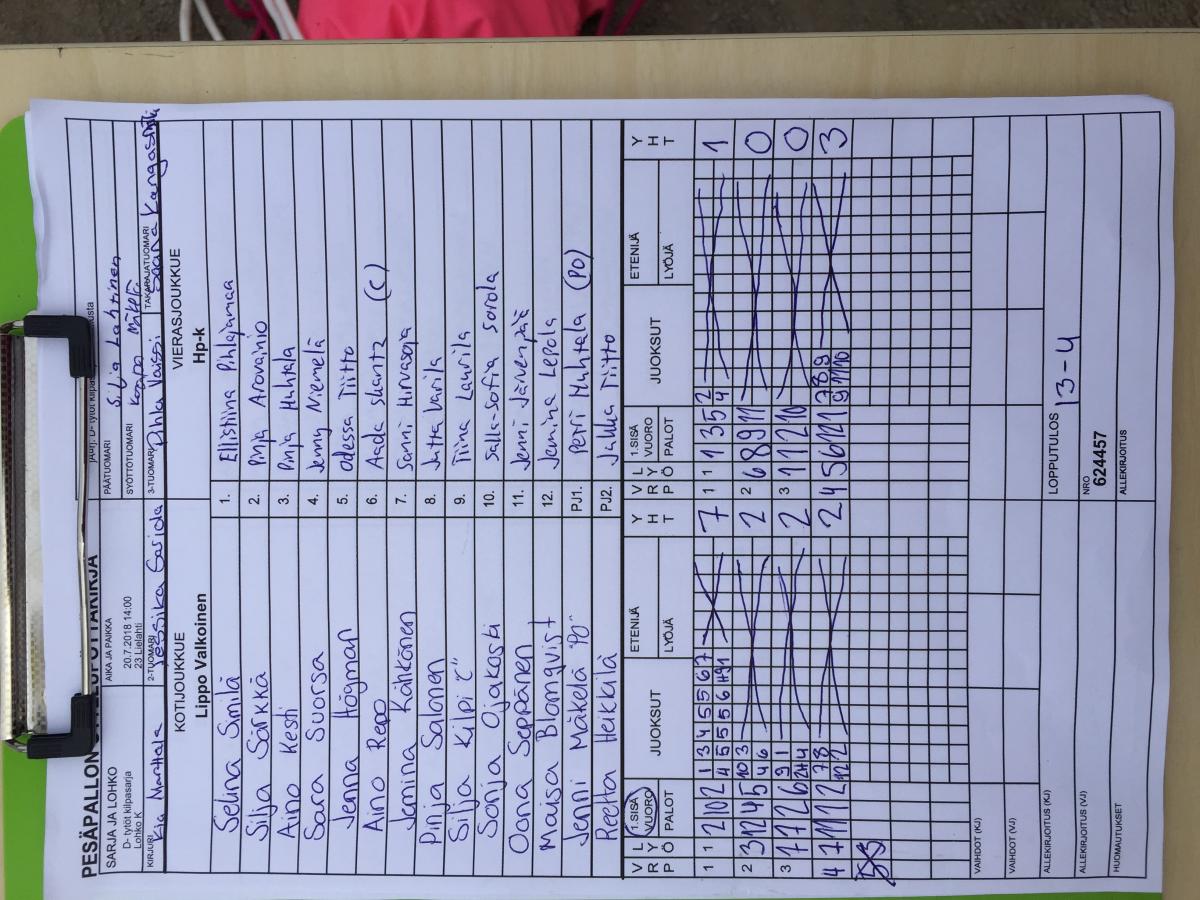 PESÄPALLON OTTELUPÖYTÄKIRJA
SARJA JA LOHKO
D- tytöt kilpasarja
Lohko K
AIKA JA PAIKKA
20.7.2018 14:00
23 Lielahti
PÄÄTUOMARI
Silja Lahtinen
SYÖTTÖTUOMARI
Roope Mäkelä
KIRJURI
Kia Marttala
2-TUOMARI
Jessika Sarjola
3-TUOMARI
TAKARAJATUOMARI
KOTIJOUKKUE
Lippo Valkoinen
VIERASJOUKKUE
Hp-k
Selina Sinilä 1. Ellistiina Pihlajamaa
Silja Särkkä 2. Pinja Arovainio
Aino Kesti 3. Pinja Huhtala
Sara Suorsa 4. Jenny Niemelä
Jenna Högman 5. Odessa Tiitto
Aino Repo 6. Aada Skantz (C)
Jemina Kähkönen 7. Sanni Hirvasoja
Pinja Salonen 8. Jutta Varila
Silja Kilpi "C" 9. Tiina Laurila
Sonja Ojakoski 10. Salla-Sofia Sorola
Oona Seppänen 11. Jenni Järvenpää
Maisa Blomqvist 12. Jemina Lepola
Jenni Mäkelä "PO" PJ1. Petri Huhtala (PO)
Reetta Heikkilä PJ2. Jukka Tiitto
V R P L Y Ö 1.SISÄ VUORO PALOT JUOKSUT ETENIJÄ LYÖJÄ Y H T
V R P L Y Ö 1.SISÄ VUORO PALOT JUOKSUT ETENIJÄ LYÖJÄ Y H T
1 1 2 10 2 1 3 4 5 5 6 7 7
4 5 5 5 6 11 9 1
1 1 1 3 5 2 1
4
2 3 12 4 5 10 3 2
4 6
2 6 8 9 11 0
3 1 7 12 6 9 1 2
2 4
3 1 1 2 10 0
4 7 11 12 7 8 2
12 2
2 4 5 6 12 1 7 8 9 3
9 11 10
VAIHDOT (KJ)
VAIHDOT (VJ)
ALLEKIRJOITUS (KJ)
LOPPUTULOS
13-4
ALLEKIRJOITUS (VJ)
NRO
624457
HUOMAUTUKSET
ALLEKIRJOITUS